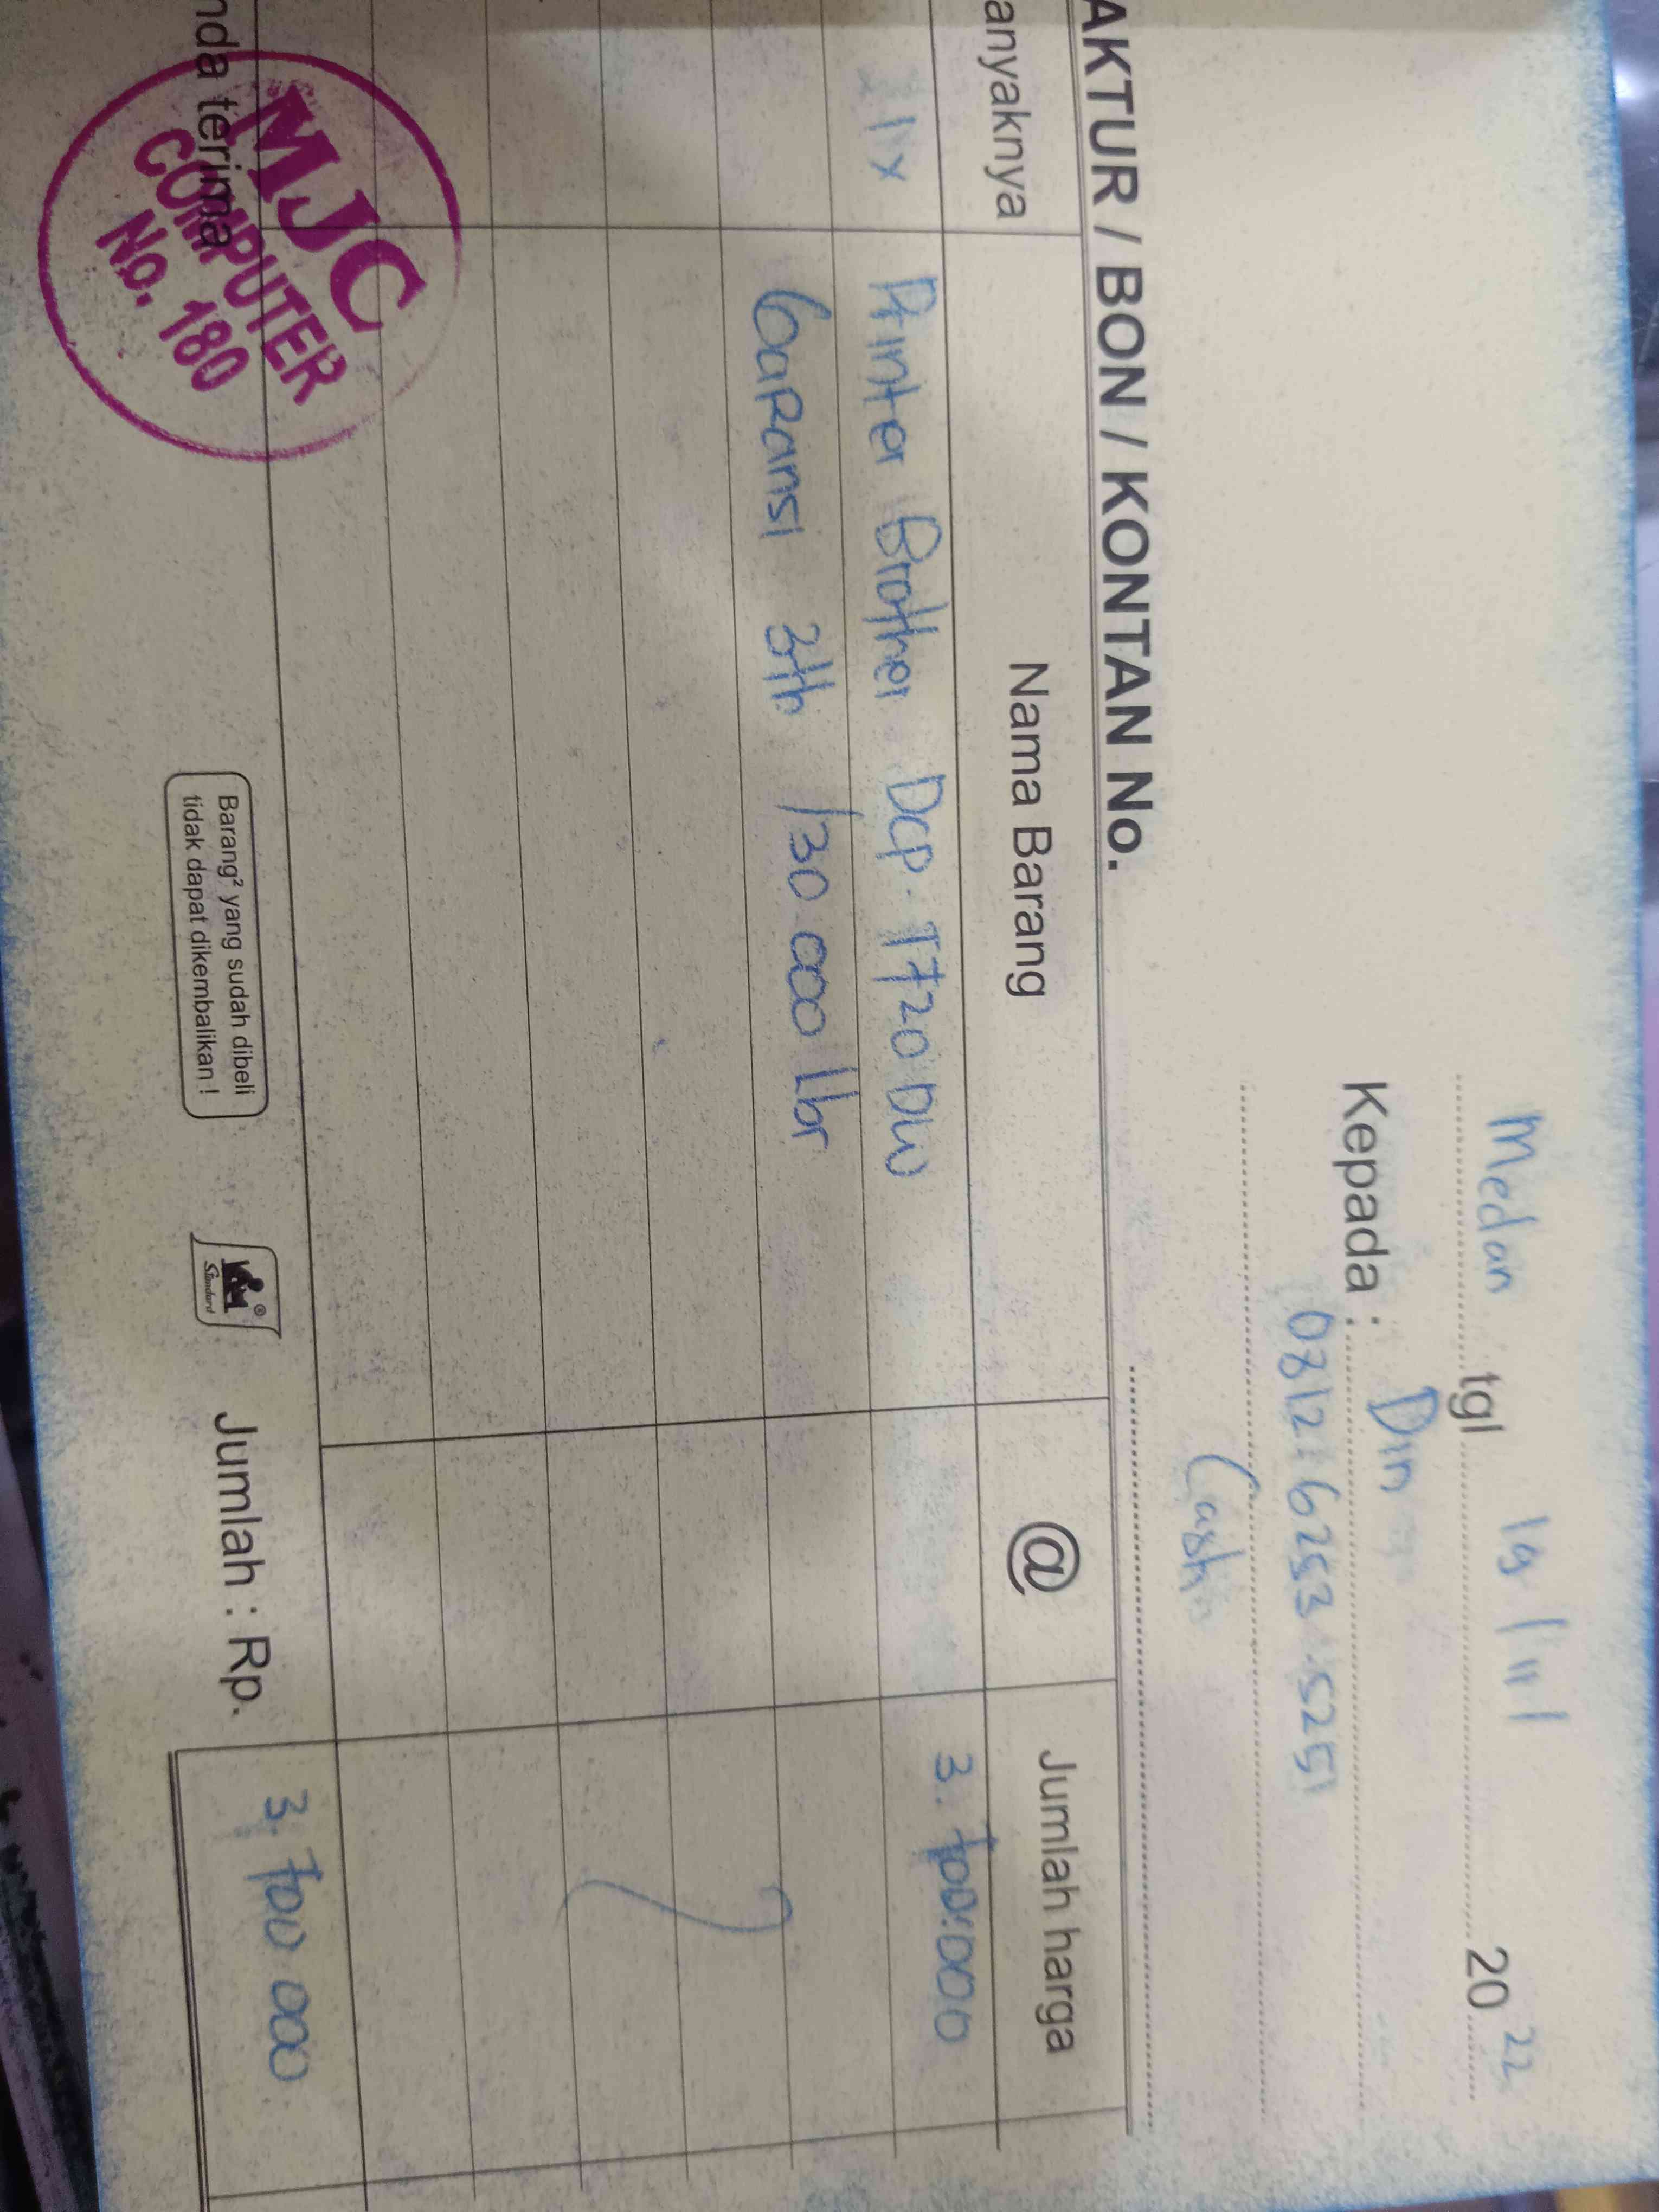 Medan tgl 19 / III / 20 22
Kepada : Din
0812 6253 5251
Cash
AKTUR / BON / KONTAN No.
anyaknya Nama Barang @ Jumlah harga
1x Printer Brother DCP. T720 DW 3. 700.000
Garansi 3th /30.000 Lbr
nda terima
MJC
COMPUTER
No. 180
Barang² yang sudah dibeli
tidak dapat dikembalikan !
Standard
Jumlah : Rp. 3. 700 000